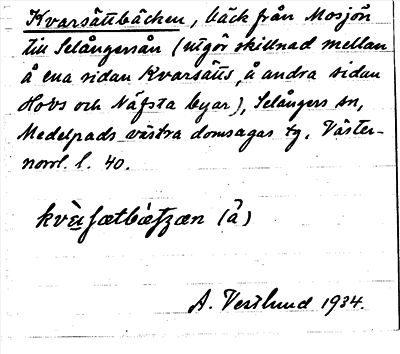 Kvarsättbäcken, bäck från Mosjön
till Selångersån (utgör skillnad mellan
å ena sidan Kvarsätts, å andra sidan
Hovs och Näfsta byar), Selångers sn,
Medelpads västra domsagas tg, Väster-
norrl. l. 40.
(å)
A. Vestlund 1934.